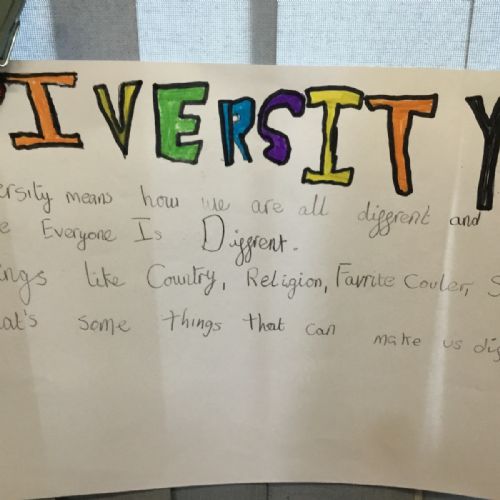 IVERSITY
ersity means how we are all diggrent and
e Everyone Is Diggrent.
ings like Country, Religion, Favrite Couler, S
at's some things that can make us dig